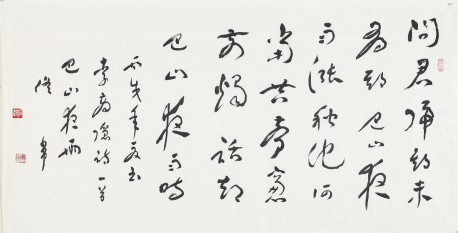 問君歸期未
有期巴山夜
雨漲秋池何
當共西窗
剪燭話却
巴山夜雨時
丙戌年夏書
李商隱詩一首
巴山夜雨